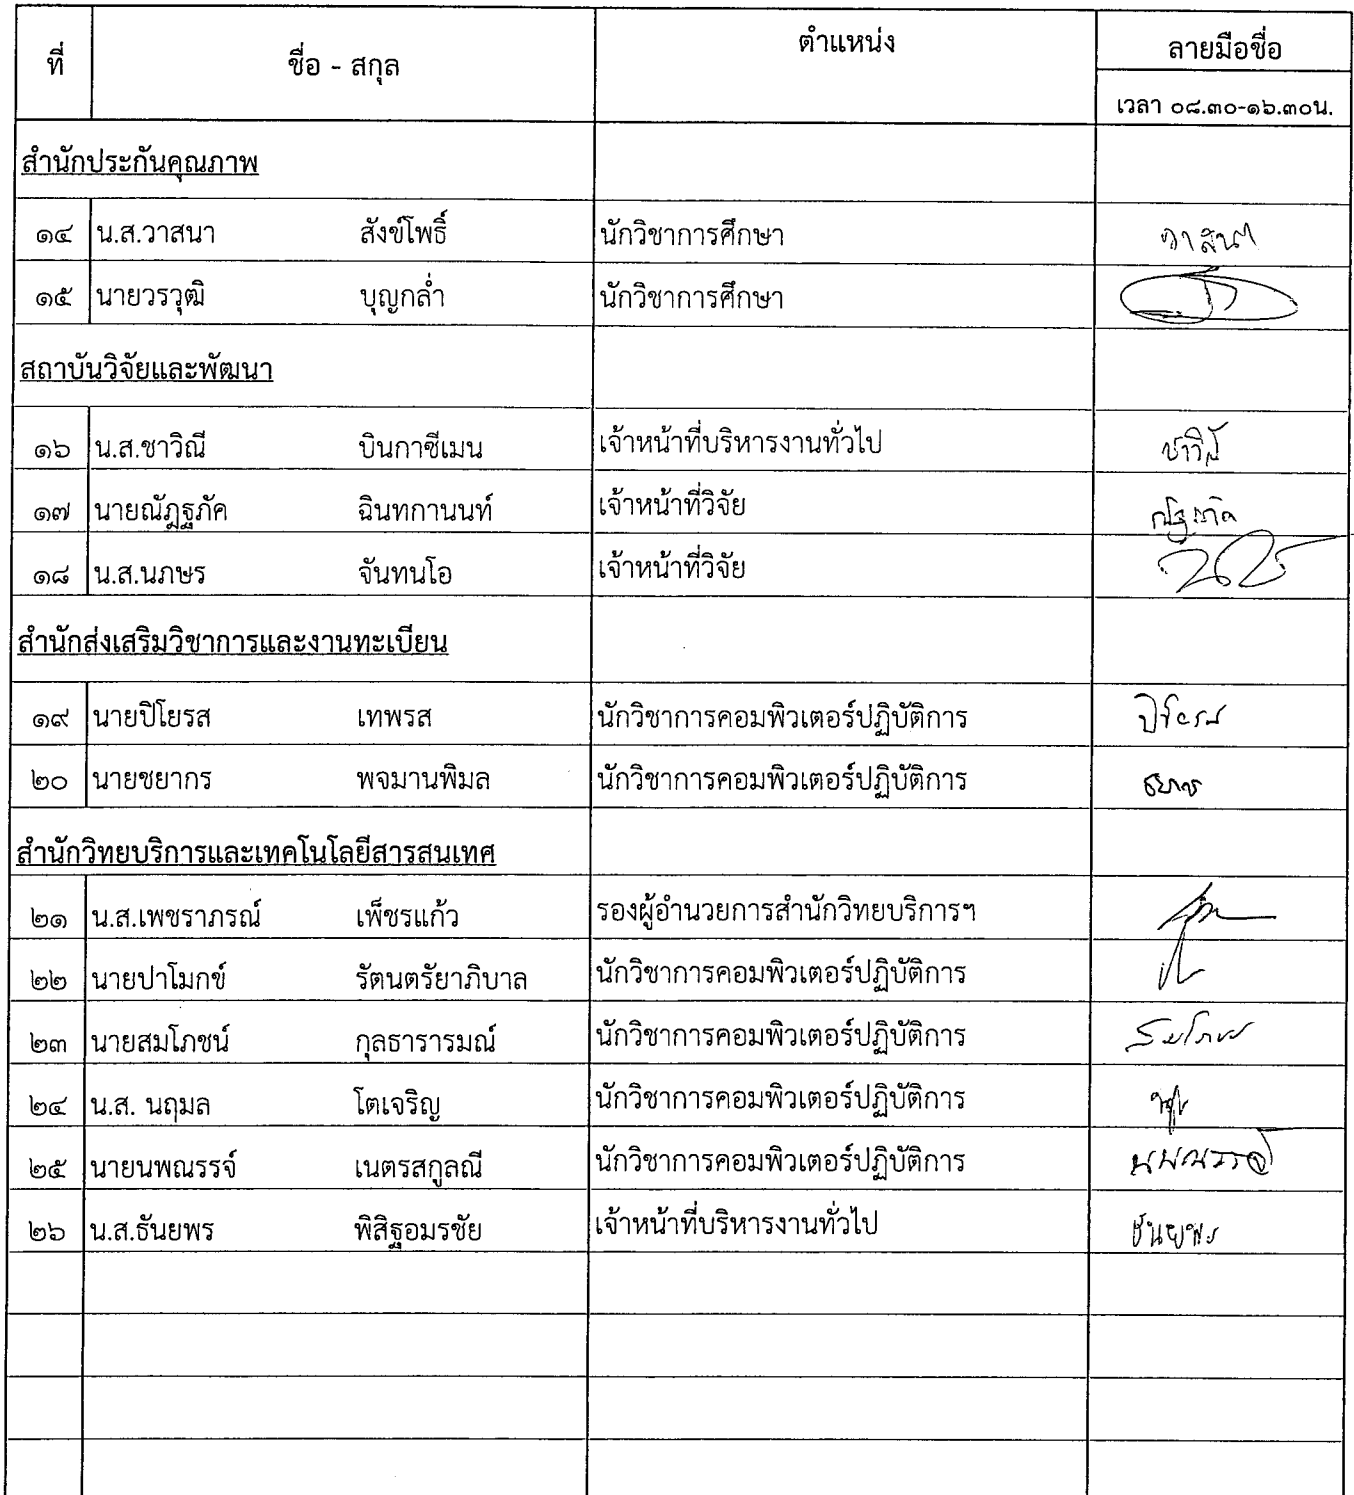 ที่ ชื่อ - สกุล ตำแหน่ง ลายมือชื่อ
เวลา ๐๘.๓๐-๑๖.๓๐น.
สำนักประกันคุณภาพ
๑๔ น.ส.วาสนา สังข์โพธิ์ นักวิชาการศึกษา วาสนา
๑๕ นายวรวุฒิ บุญกล่ำ นักวิชาการศึกษา
สถาบันวิจัยและพัฒนา
๑๖ น.ส.ชาวิณี บินกาซีเมน เจ้าหน้าที่บริหารงานทั่วไป ชาวิณี
๑๗ นายณัฎฐภัค ฉินทกานนท์ เจ้าหน้าที่วิจัย
๑๘ น.ส.นภษร จันทนโอ เจ้าหน้าที่วิจัย
สำนักส่งเสริมวิชาการและงานทะเบียน
๑๙ นายปิโยรส เทพรส นักวิชาการคอมพิวเตอร์ปฏิบัติการ ปิโยรส
๒๐ นายชยากร พจมานพิมล นักวิชาการคอมพิวเตอร์ปฏิบัติการ
สำนักวิทยบริการและเทคโนโลยีสารสนเทศ
๒๑ น.ส.เพชราภรณ์ เพ็ชรแก้ว รองผู้อำนวยการสำนักวิทยบริการฯ
๒๒ นายปาโมกข์ รัตนตรัยาภิบาล นักวิชาการคอมพิวเตอร์ปฏิบัติการ
๒๓ นายสมโภชน์ กุลธารารมณ์ นักวิชาการคอมพิวเตอร์ปฏิบัติการ
๒๔ น.ส. นฤมล โตเจริญ นักวิชาการคอมพิวเตอร์ปฏิบัติการ
๒๕ นายนพณรรจ์ เนตรสกูลณี นักวิชาการคอมพิวเตอร์ปฏิบัติการ นพณรรจ์
๒๖ น.ส.ธันยพร พิสิฐอมรชัย เจ้าหน้าที่บริหารงานทั่วไป ธันยพร